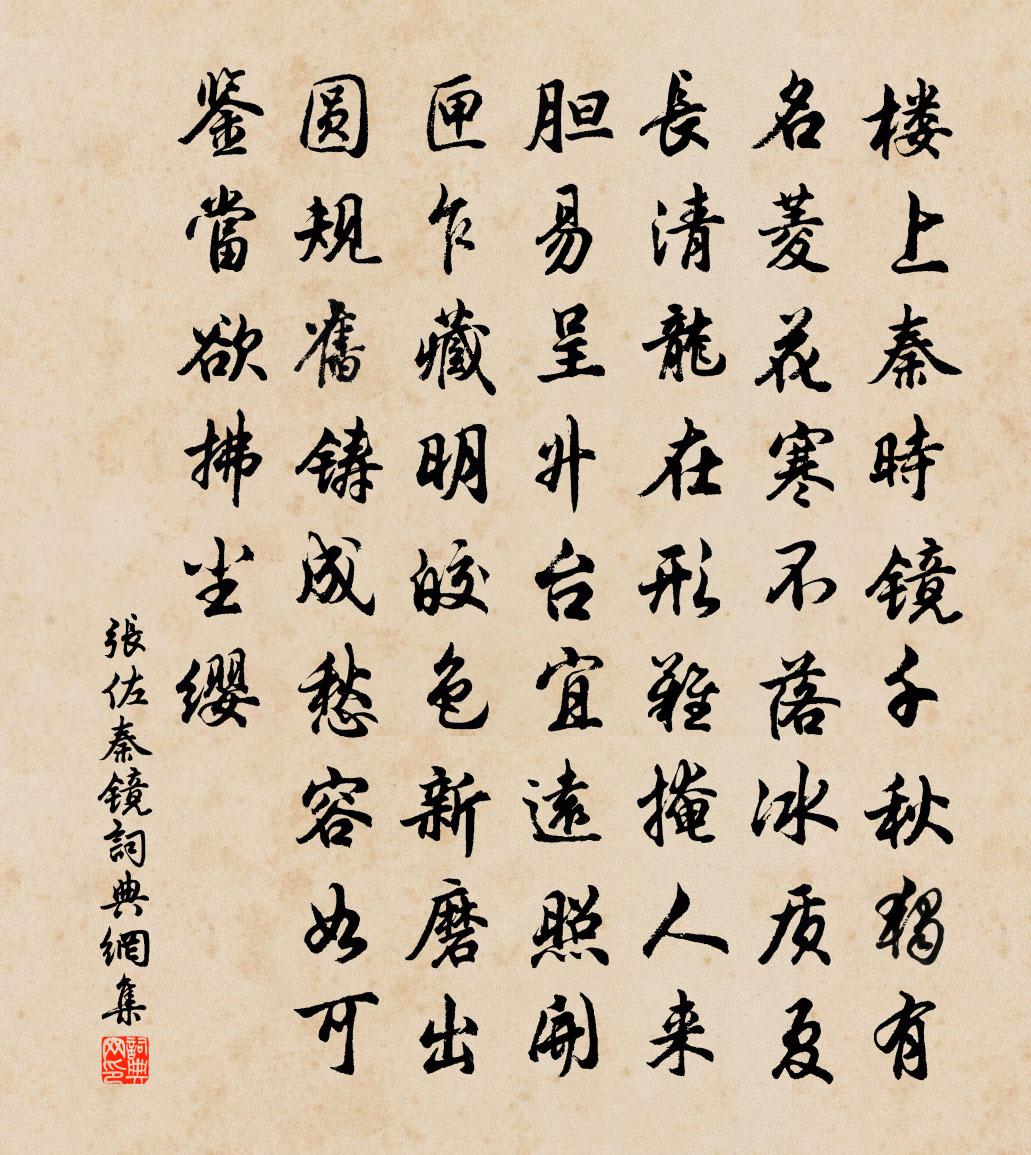 楼上秦時镜千秋獨有
名菱花寒不落冰质夏
長清龍在形難掩人来
胆易呈升台宜遠照開
匣乍藏明皎色新磨出
圆规舊鑄成愁容如可
鉴當欲拂尘缨
張佐秦镜詞典網集
詞典网印